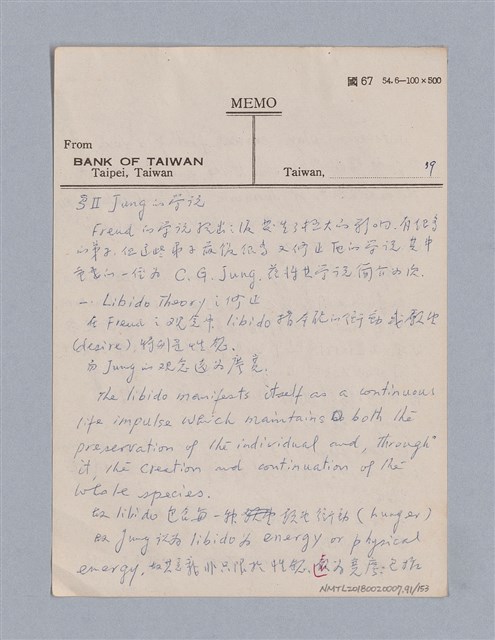 國 67 54.6-100×500
MEMO
From
BANK OF TAIWAN
Taipei, Taiwan
Taiwan, 39
II Jung 的学说
Freud 的学说 提出之後 发生了极大的影响, 有很多
的弟子, 但这些弟子 很多 又修止他的学说, 其中
重要的一位为 C. G. Jung. 兹将其学说简介如次.
一. Libido Theory 之修止
在 Freud 之观念中, libido 指 的衝動或
(desire), 特别是性慾.
而 Jung 的观念 为廣寬.
The libido manifests itself as a continuous
life impulse which maintains both the
preservation of the individual and, through
it, the creation and continuation of the
whole species.
故 libido 包含每一种 衝動 (hunger)
故 Jung 认为 libido 为 energy or physical
energy, 故其意義非只限於性慾, 为寬廣, 已
NMTL20180020007.91/153